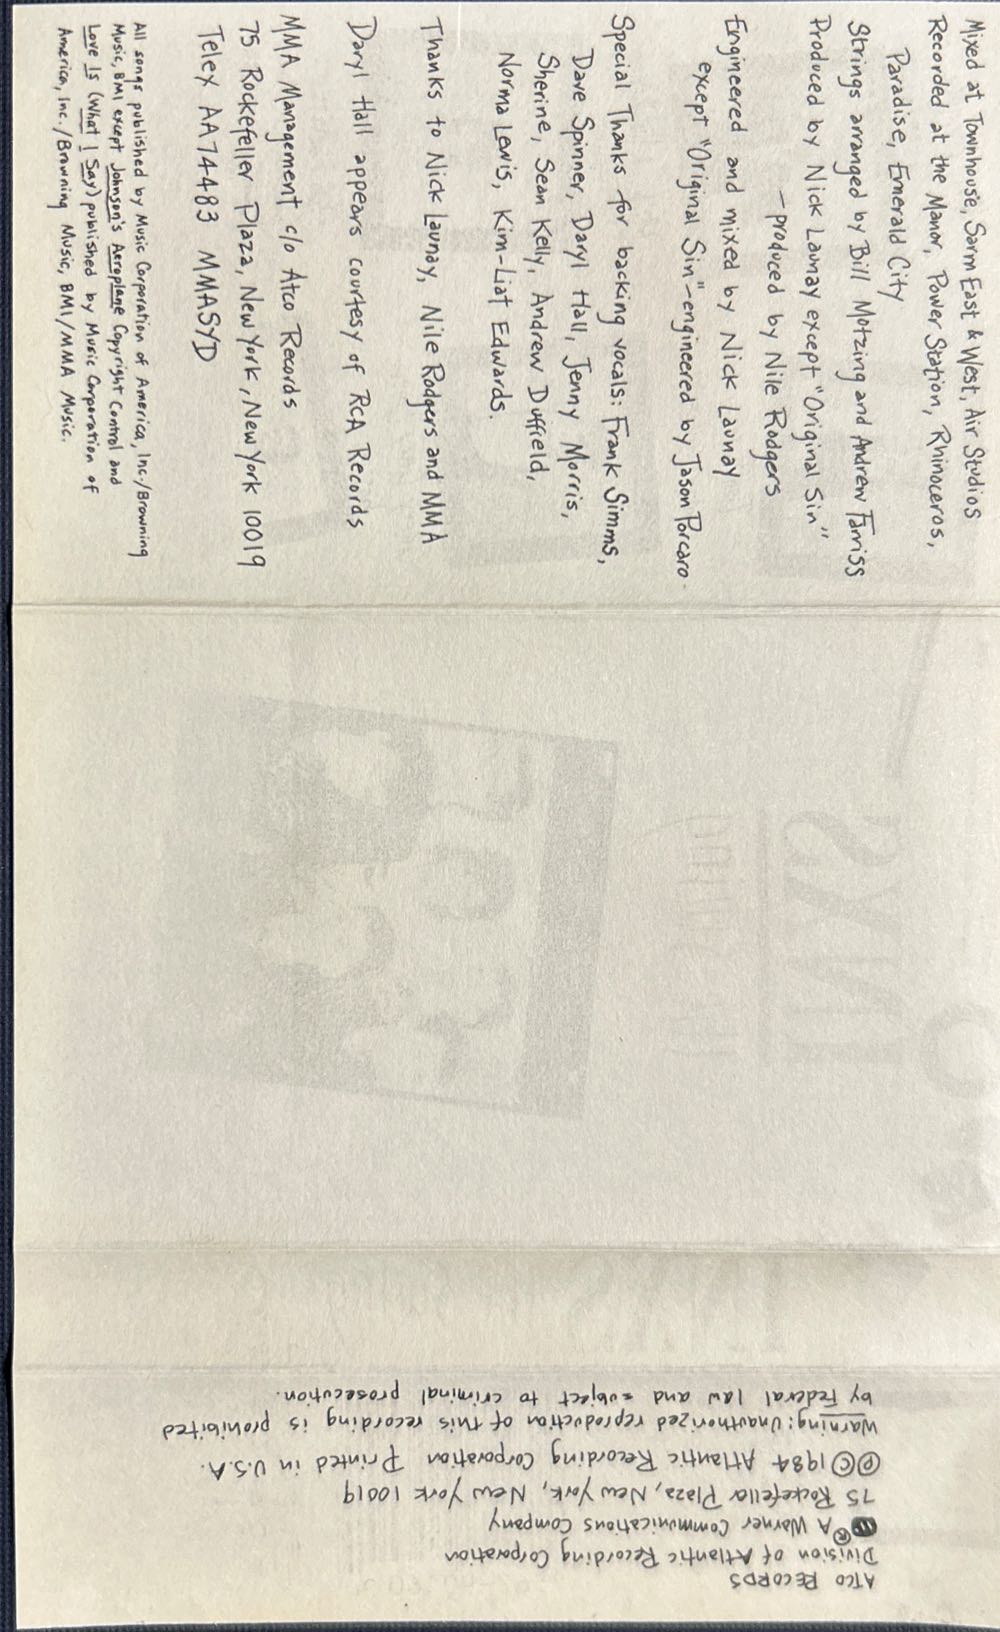 Mixed at Townhouse, Sarm East & West, Air Studios
Recorded at the Manor, Power Station, Rhinoceros,
Paradise, Emerald City
Strings arranged by Bill Motzing and Andrew Farriss
Produced by Nick Launay except "Original Sin"
-produced by Nile Rodgers
Engineered and mixed by Nick Launay
except "Original Sin"-engineered by Jason Porcaro.
Special Thanks for backing vocals: Frank Simms,
Dave Spinner, Daryl Hall, Jenny Morris,
Sherine, Sean Kelly, Andrew Duffield,
Norma Lewis, Kim-Liat Edwards.
Thanks to Nick Launay, Nile Rodgers and MMA
Daryl Hall appears courtesy of RCA Records
MMA Management c/o Atco Records
75 Rockefeller Plaza, New York, New York 10019
Telex AA74483 MMASYD
All songs published by Music Corporation of America, Inc./Browning
Music, BMI except Johnson's Aeroplane Copyright Control and
Love Is (What I Say) published by Music Corporation of
America, Inc./Browning Music, BMI/MMA Music.
ATCO RECORDS
Division of Atlantic Recording Corporation
® A Warner Communications Company
75 Rockefeller Plaza, New York, New York 10019
℗©1984 Atlantic Recording Corporation Printed in U.S.A.
Warning: Unauthorized reproduction of this recording is prohibited
by Federal law and subject to criminal prosecution.